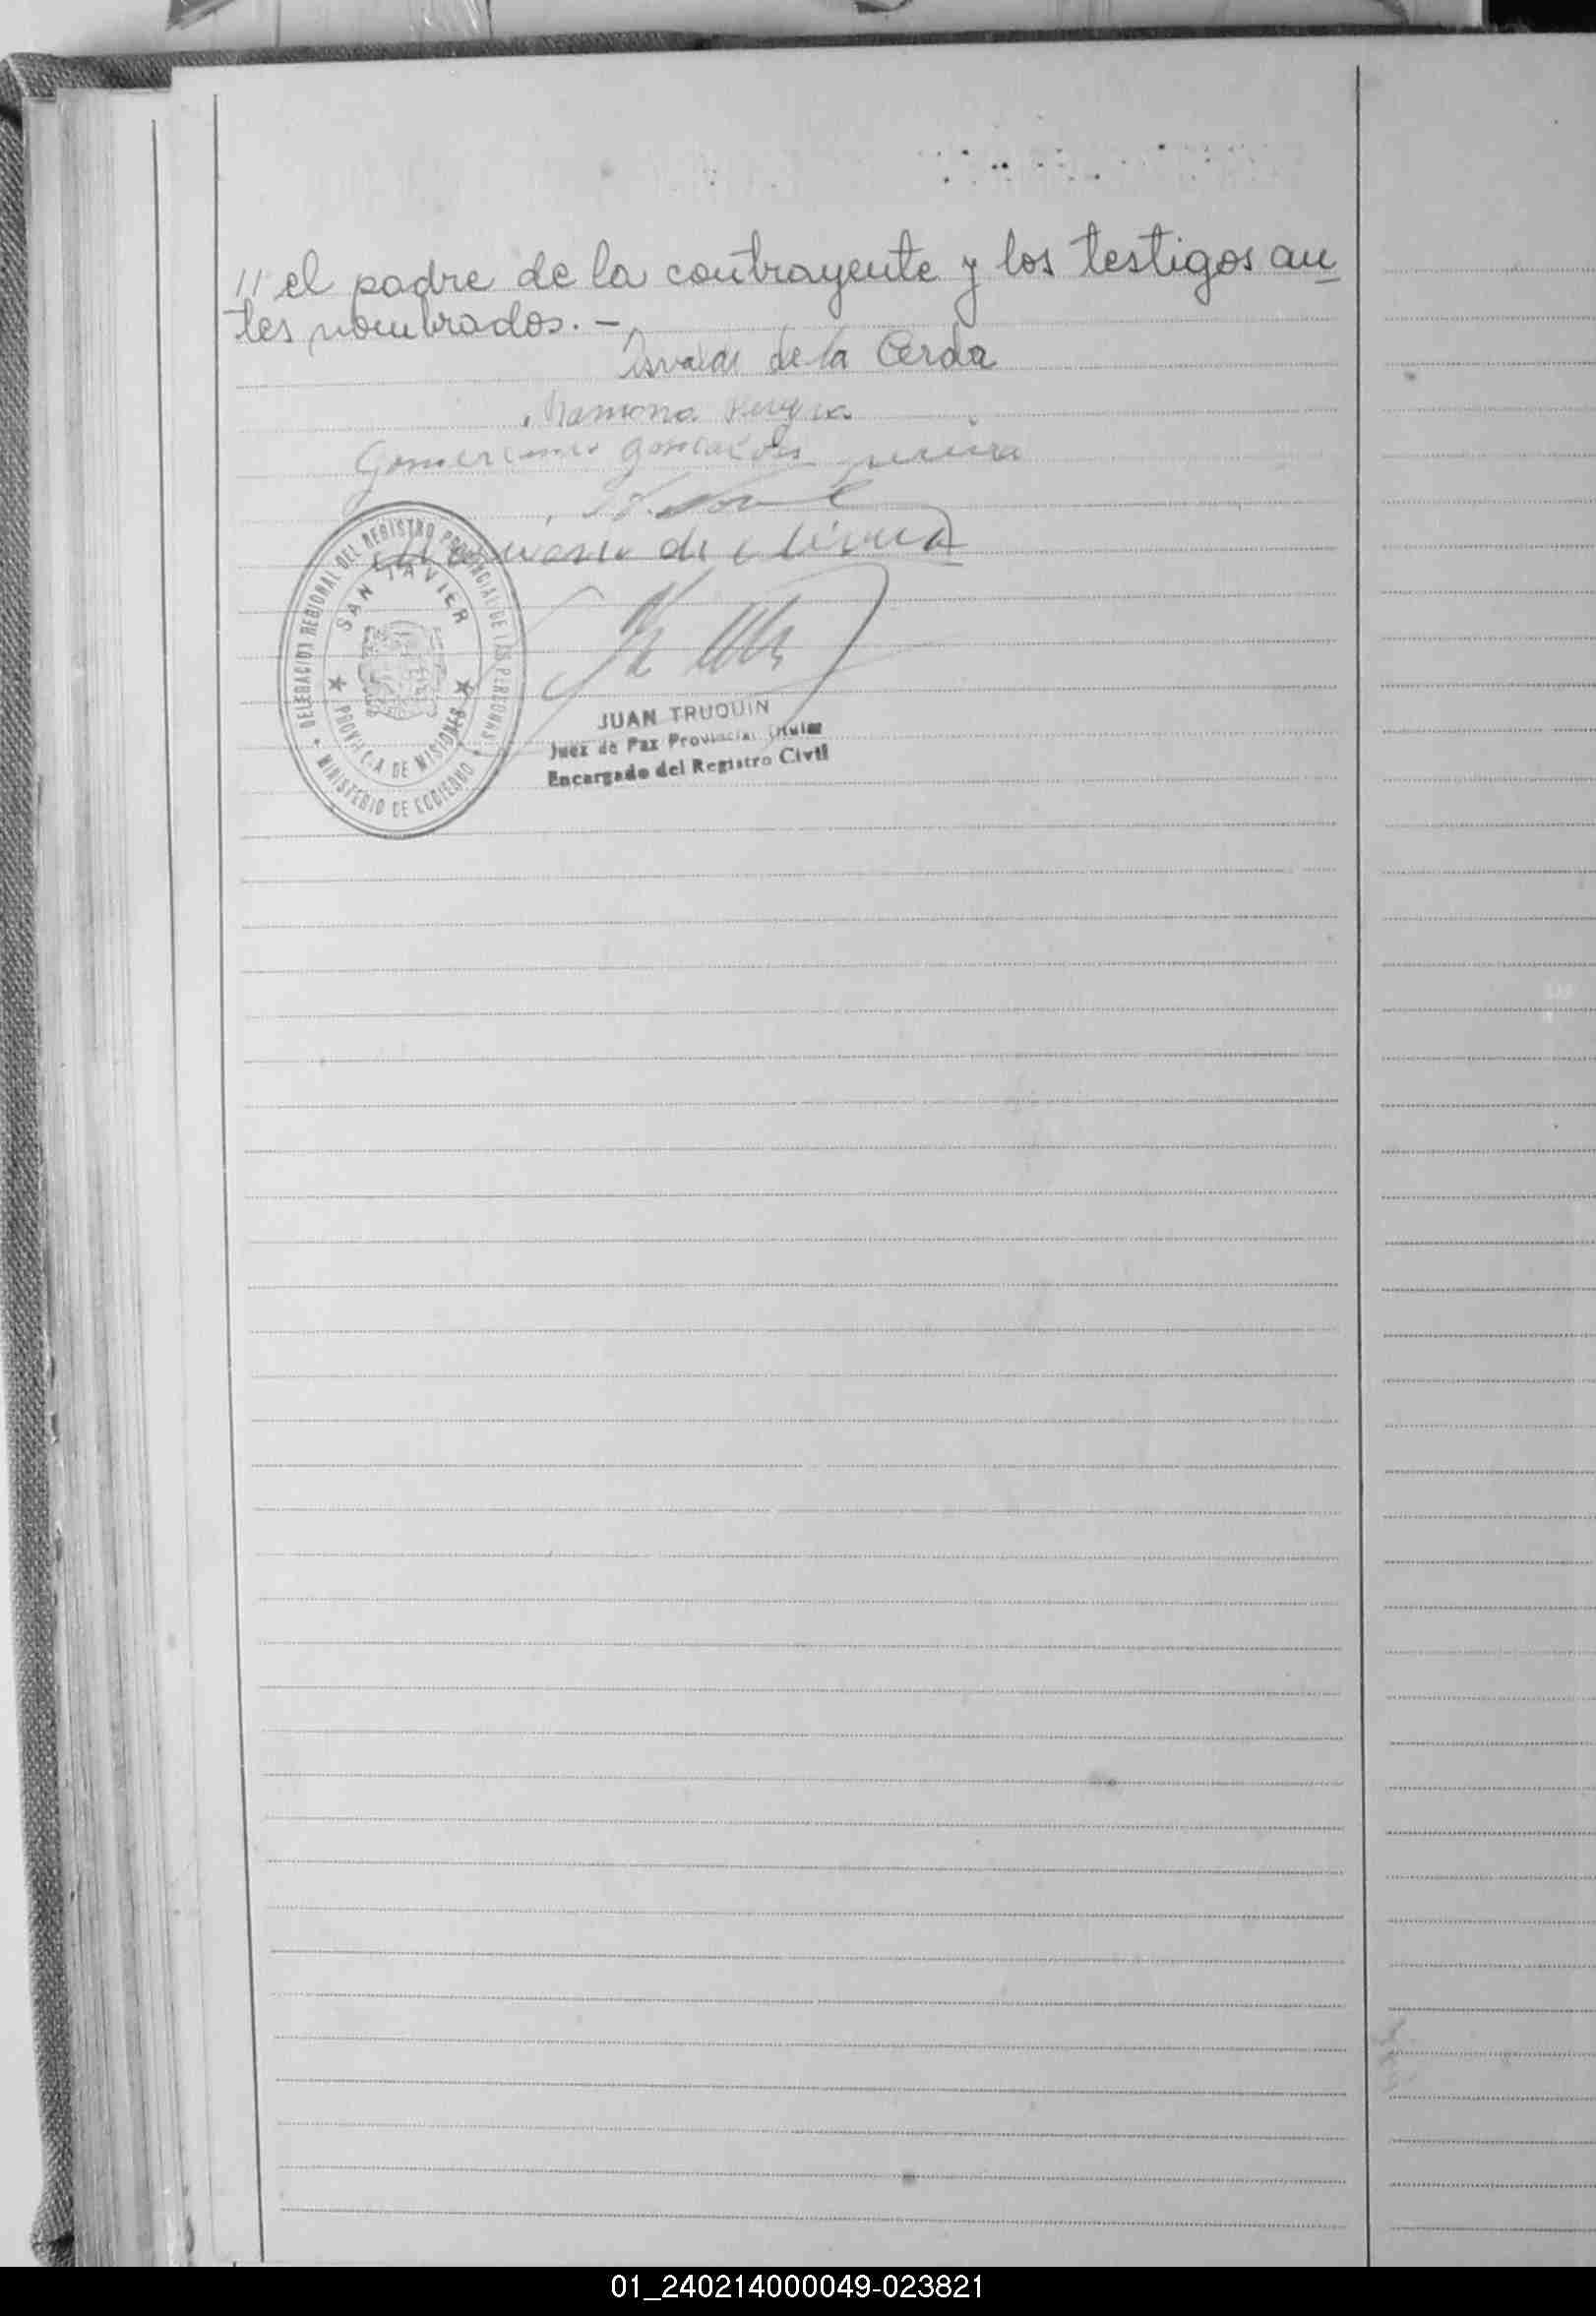 // el padre de la contrayente y los testigos an
tes nombrados. -
Osvaldo de la Cerda
Ramona
de
DELEGACION REGIONAL DEL REGISTRO PROVINCIAL DE LAS PERSONAS
SAN JAVIER
PROVINCIA DE MISIONES
MINISTERIO DE GOBIERNO
JUAN TRUQUIN
Juez de Paz Provincial Titular
Encargado del Registro Civil
01_240214000049-023821